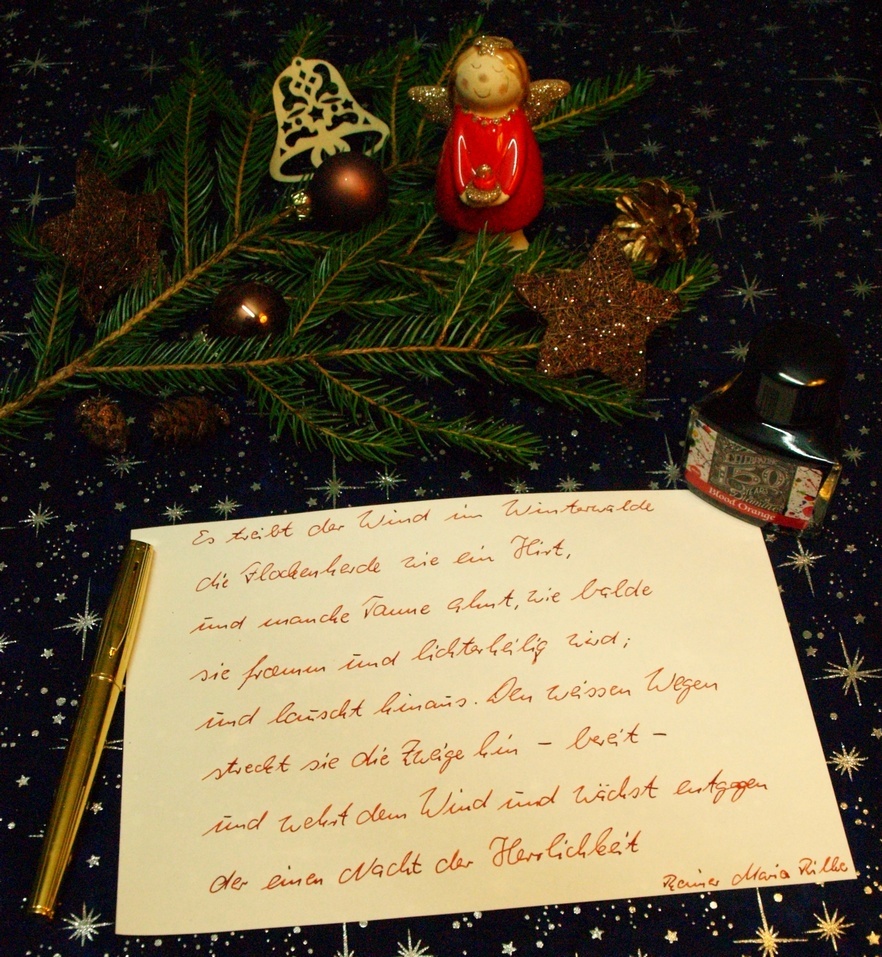 150
YEARS
Blood Orange
Es treibt der Wind im Winterwalde
die Flockenherde wie ein Hirt,
und manche Tanne ahnt, wie balde
sie fromm und lichterheilig wird;
und lauscht hinaus. Den weissen Wegen
streckt sie die Zweige hin – bereit –
und wehrt dem Wind und wächst entgegen
der einen Nacht der Herrlichkeit
Rainer Maria Rilke